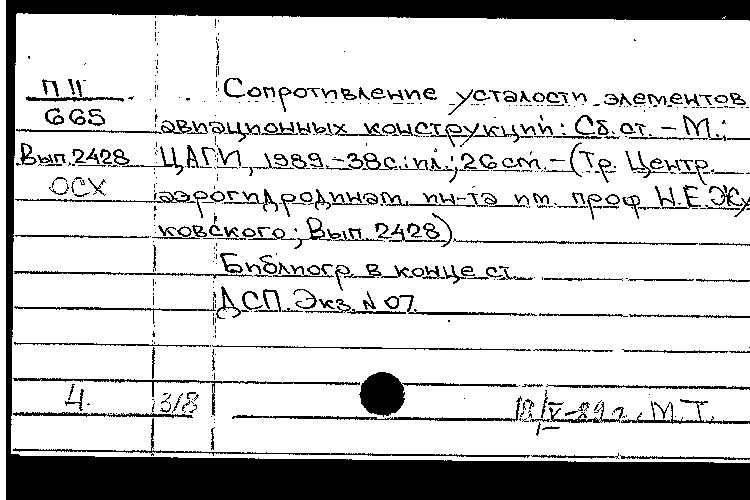 П 11
665
Вып. 2428
ОСХ
Сопротивление усталости элементов
авиационных конструкций: Сб. ст. - М.:
ЦАГИ, 1989. - 38 с.: ил.; 26 см. - (Тр. Центр.
аэрогидродинам. ин-та им. проф Н.Е. Жу
ковского; Вып. 2428)
Библиогр в конце ст.
ДСП. Экз. N 07.
4. 3/8 V-89 г. М.Т.